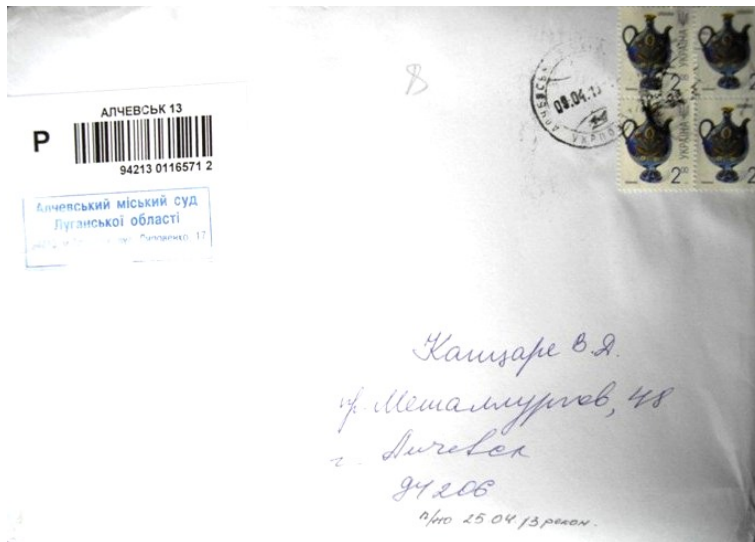 АЛЧЕВСЬК 13
Р
94213 0116571 2
Алчевський міський суд
Луганської області
17
09.04.13
УКРПОШ
УКРАЇНА
2
УКРАЇНА
2
2
Кацаре В.Д.
пр. Металлургов, 48
г. Алчевск
94206
п/но 25 04 13 реком.